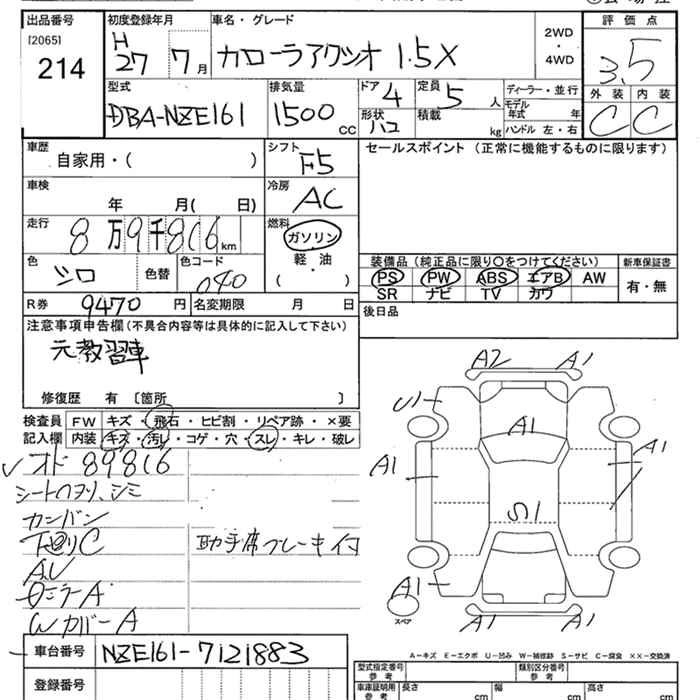 出品番号 初度登録年月 車名・グレード 2WD・4WD 評価点
[2065]
214 H27 7月 カローラアクシオ 1.5X 3.5
型式 排気量 ドア 4 定員 5人 ディーラー・並行 外装 内装
DBA-NZE161 1500cc 形状 ハコ 積載 kg モデル年式 年 C C
ハンドル 左・右
車歴 シフト F5 セールスポイント (正常に機能するものに限ります)
自家用・( )
車検 冷房 AC
年 月( 日)
走行 燃料
8万9千816km ガソリン
軽・油
( )
色 シロ 色替 色コード 040
装備品 (純正品に限り○をつけてください) 新車保証書
PS PW ABS エアB AW 有・無
SR ナビ TV カワ
R券 9470円 名変期限 月 日 後日品
注意事項申告欄 (不具合内容等は具体的に記入して下さい)
元教習車
修復歴 有 〔箇所 〕
検査員 FW キズ・飛石・ヒビ割・リペア跡・×要
記入欄 内装 キズ・汚レ・コゲ・穴・スレ・キレ・破レ
オド 89816
シートヘタリ、シミ
カンバン
下廻りC 助手席ブレーキ付
ミラーA
WカバーA
A2 A1
U1 A1
A1 A1
S1
A1
スペア
A1 A1
A-キズ E-エクボ U-凹み W-補修跡 S-サビ C-腐食 XX-交換済
車台番号 NZE161-7121883
登録番号
型式指定番号 参考 類別区分番号 参考
車庫証明用 参考 長さ cm 幅 cm 高さ cm